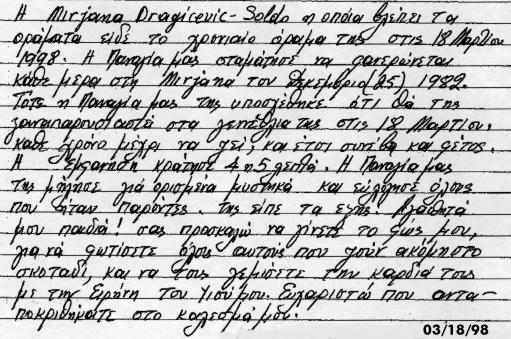 Η Mirjana Dragicevic-Soldo η οποία βλέπει τα
οράματα είδε το χρονιαίο όραμα της στις 18 Μαρτίου
1998. Η Παναγία μας σταμάτησε να φανερώνεται
κάθε μέρα στη Mirjana τον Δεκεμβριο (25) 1982.
Τότε η Παναγία μας της υποσχέθηκε ότι θά της
ξαναπαρουσιαστεί στα γενέθλια της στις 18 Μαρτίου,
κάθε χρόνο μέχρι να ζεί, και έτσι συνέβη και φέτος.
Η εμφάνηση κράτησε 4 η 5 λεπτά. Η Παναγία μας
της μίλησε γιά ορισμένα μυστικά και ευλόγησε όλους
που ήταν παρόντες. της είπε τα εξής. Αγαπητά
μου παιδιά! σας προσκαλώ να γίνετε το φως μου,
για νά φωτίσετε όλους αυτούς που ζούν ακόμη στο
σκοτάδι, και να τους γεμίσετε την καρδιά τους
με την Ειρήνη του Υιού μου. Ευχαριστώ που αντα-
ποκριθήκατε στο κάλεσμά μου.
03/18/98